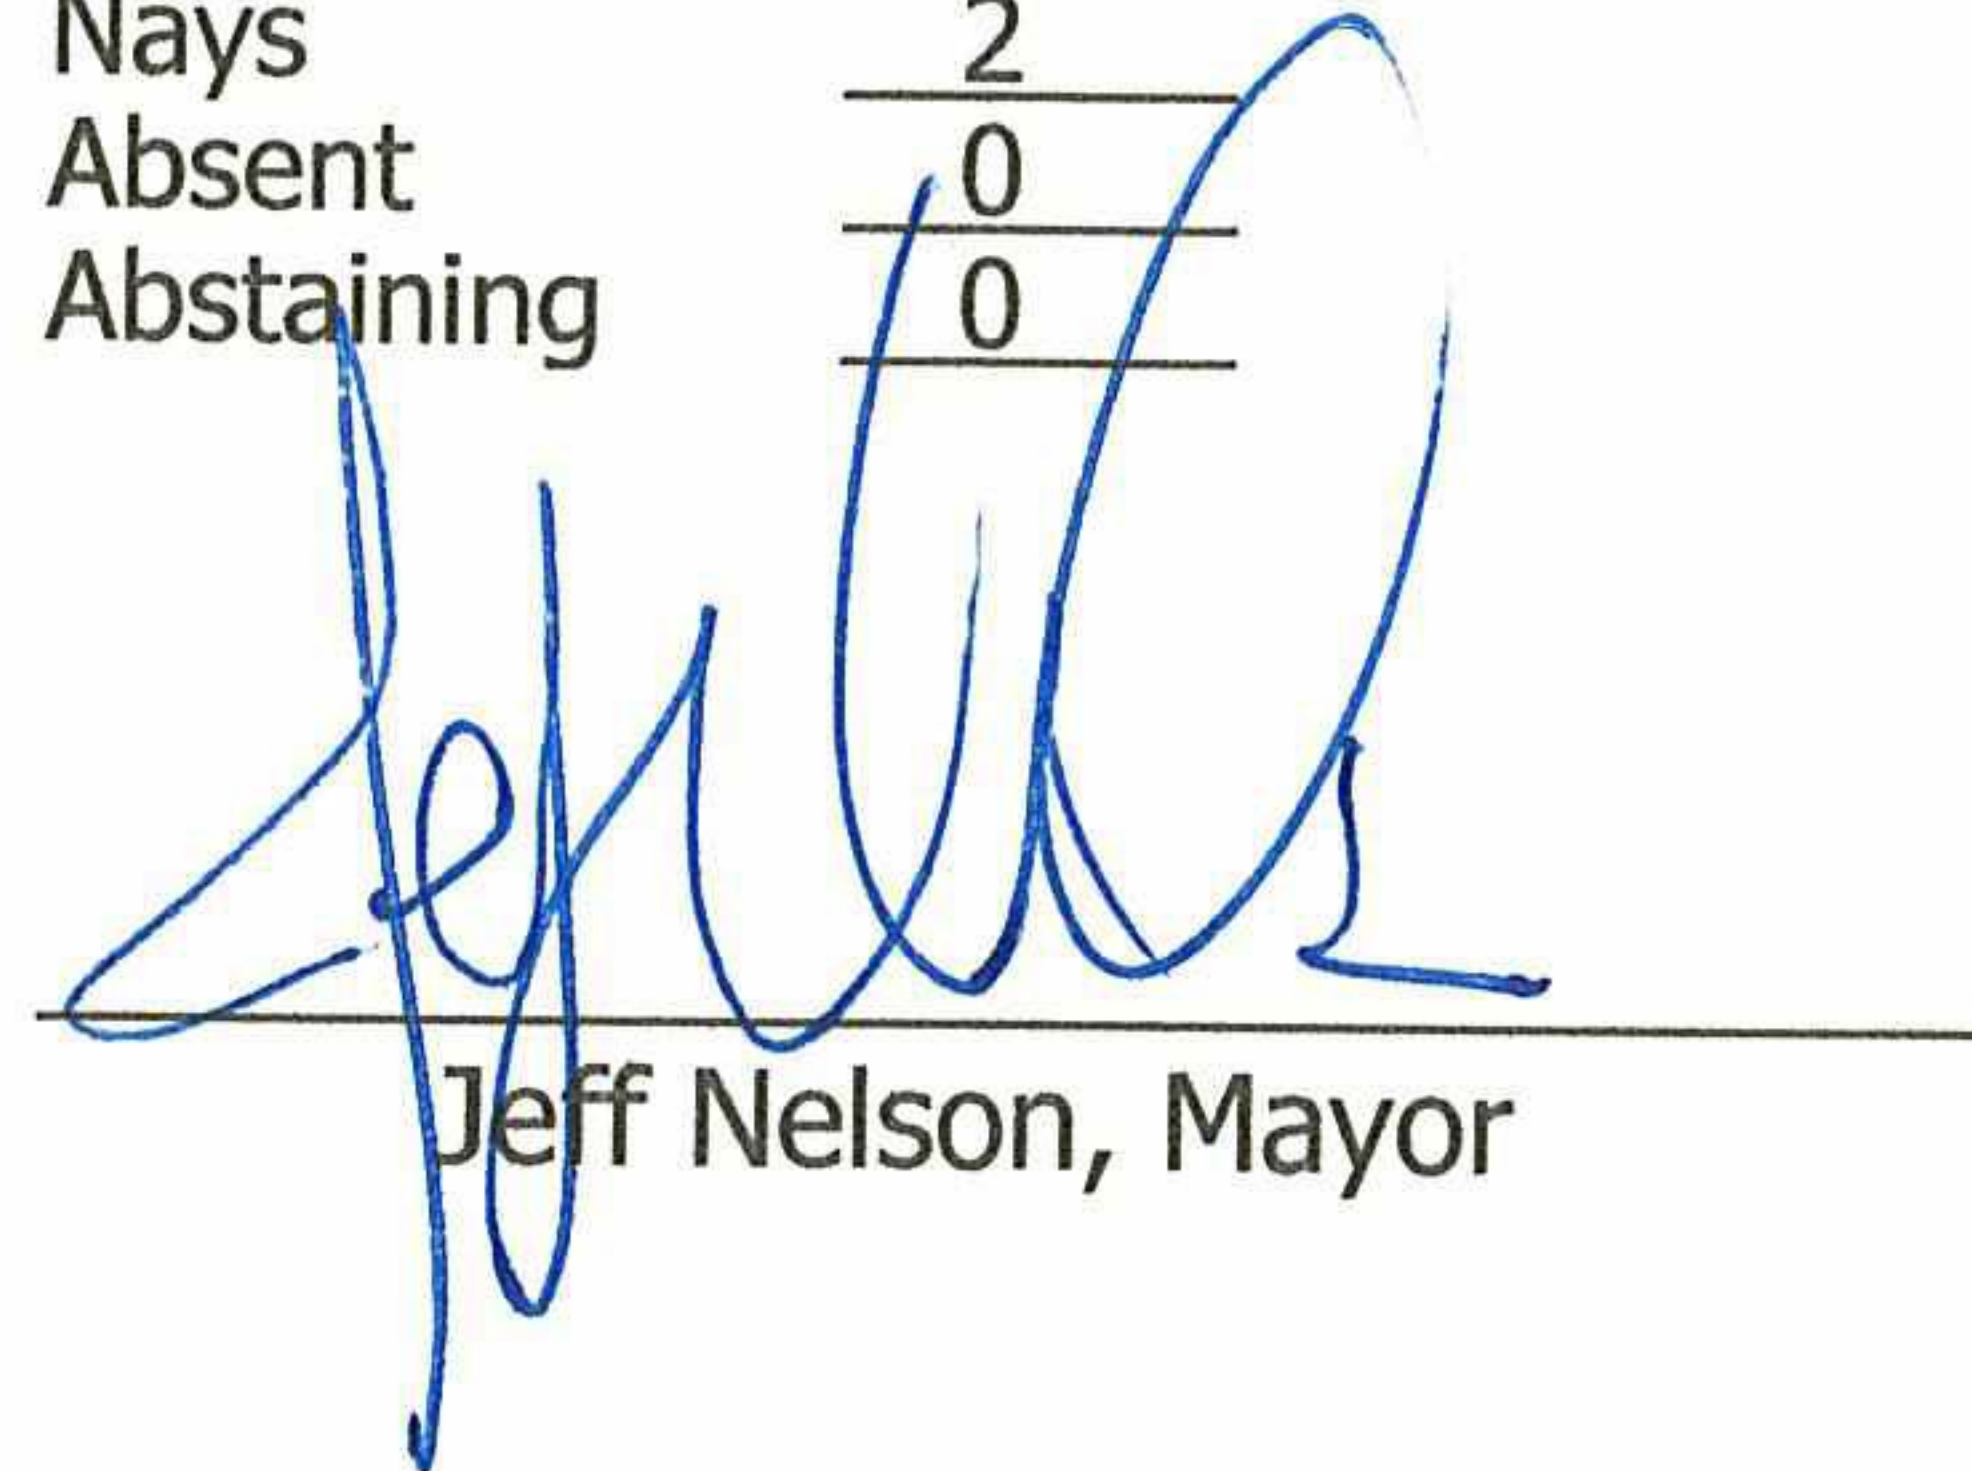 Nays 2
Absent 0
Abstaining 0
Jeff Nelson, Mayor